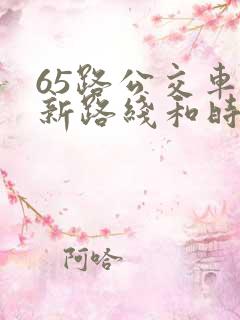 65路公交車
新路綫和時
阿哈